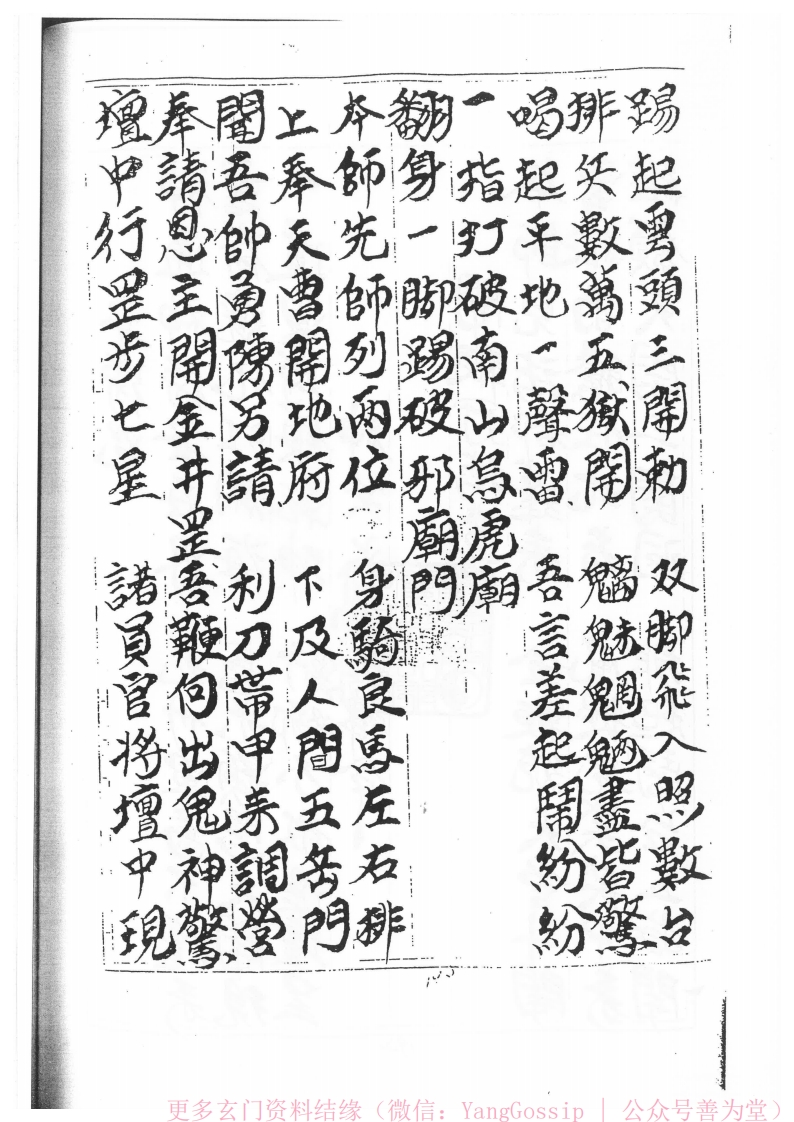 踢起雲頭三開勅　双脚飛入照數台
排兵數萬五獄開　魑魅魍魎盡皆驚
喝起平地一聲雷　吾言差起鬧紛紛
一指打破南山烏虎廟
翻身一脚踢破邪廟門
本師先師列兩位　身騎良馬左右排
上奉天曹開地府　下及人間五岳門
開吾帥勇陳另請　利刀帶甲来調營
奉請恩主開金井罡　吾鞭何出鬼神驚
壇中行罡步七星　諸員官将壇中現
更多玄门资料结缘（微信：YangGossip | 公众号善为堂）